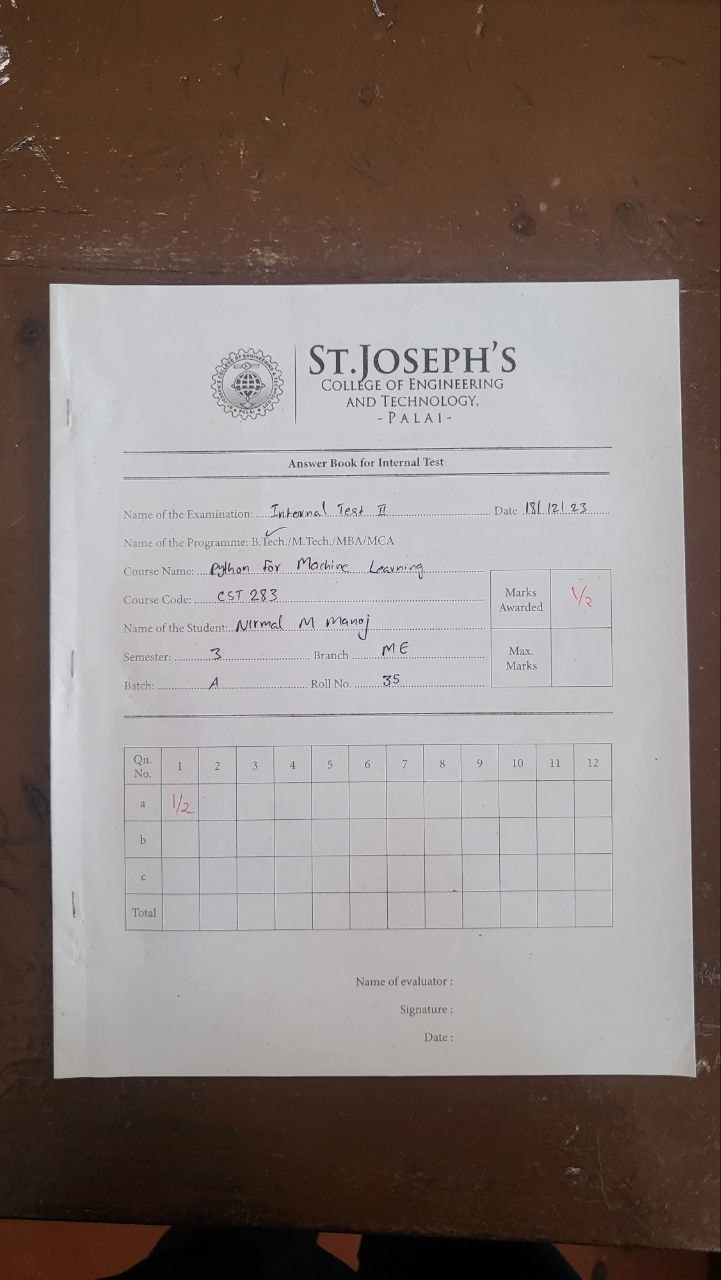 ST.JOSEPH'S
COLLEGE OF ENGINEERING
AND TECHNOLOGY,
- PALAI -
Answer Book for Internal Test
Name of the Examination: Internal Test II Date 18/12/23
Name of the Programme: B.Tech./M.Tech./MBA/MCA
Course Name: Python for Machine Learning
Course Code: CST 283
Marks Awarded 1/2
Name of the Student: Nirmal M Manoj
Semester: 3 Branch ME
Max. Marks
Batch: A Roll No. 35
Qn. No. 1 2 3 4 5 6 7 8 9 10 11 12
a 1/2
b
c
Total
Name of evaluator :
Signature :
Date :